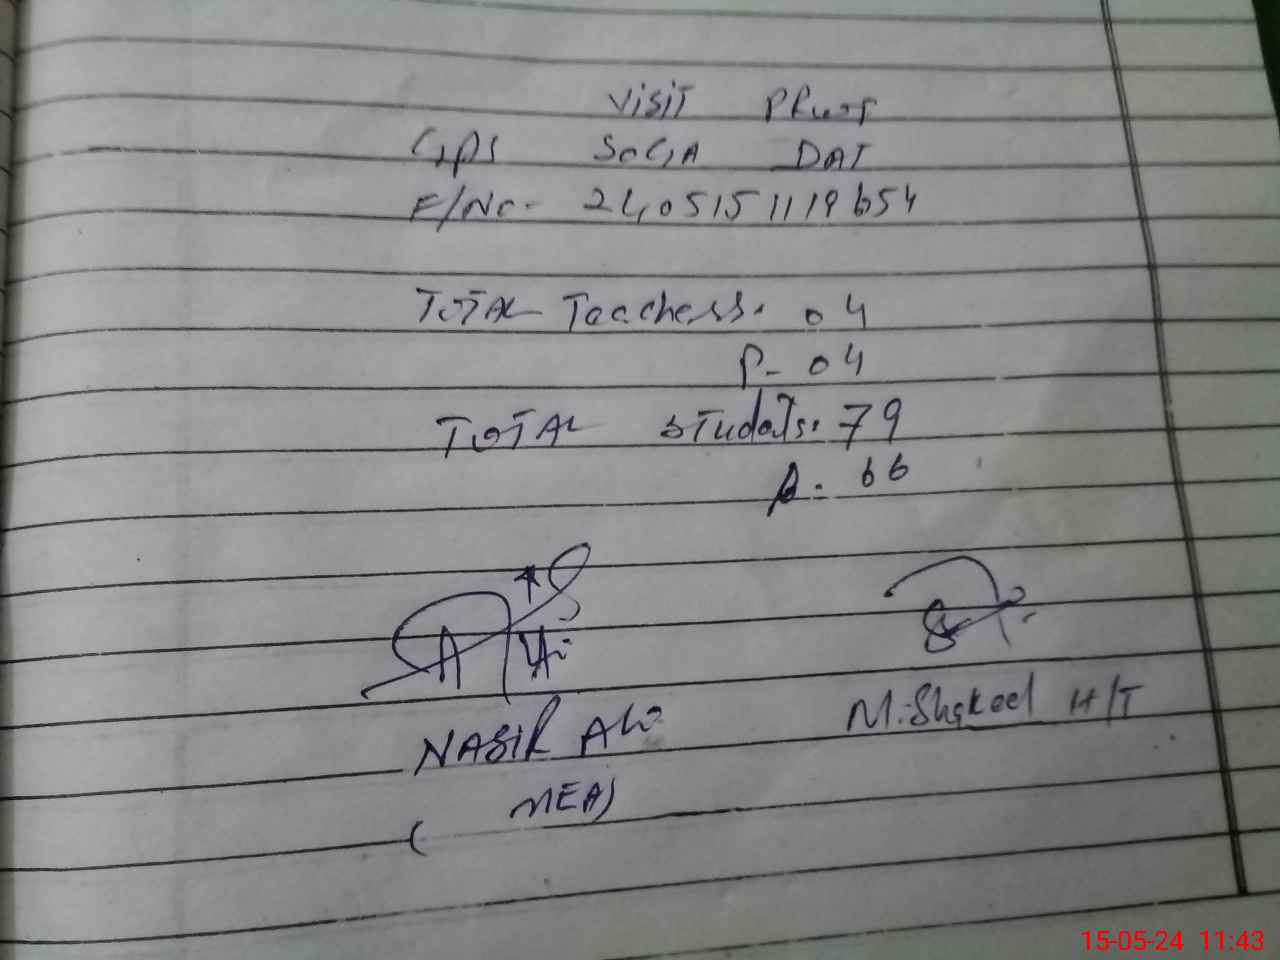 VISIT PRooF
GPS SOGA DAT
F/No- 2405151119654
TOTAL Teachers. 04
P- 04
TOTAL students. 79
P. 66
NASIR ALi
M.Shakeel H/T
(MEA)
15-05-24 11:43